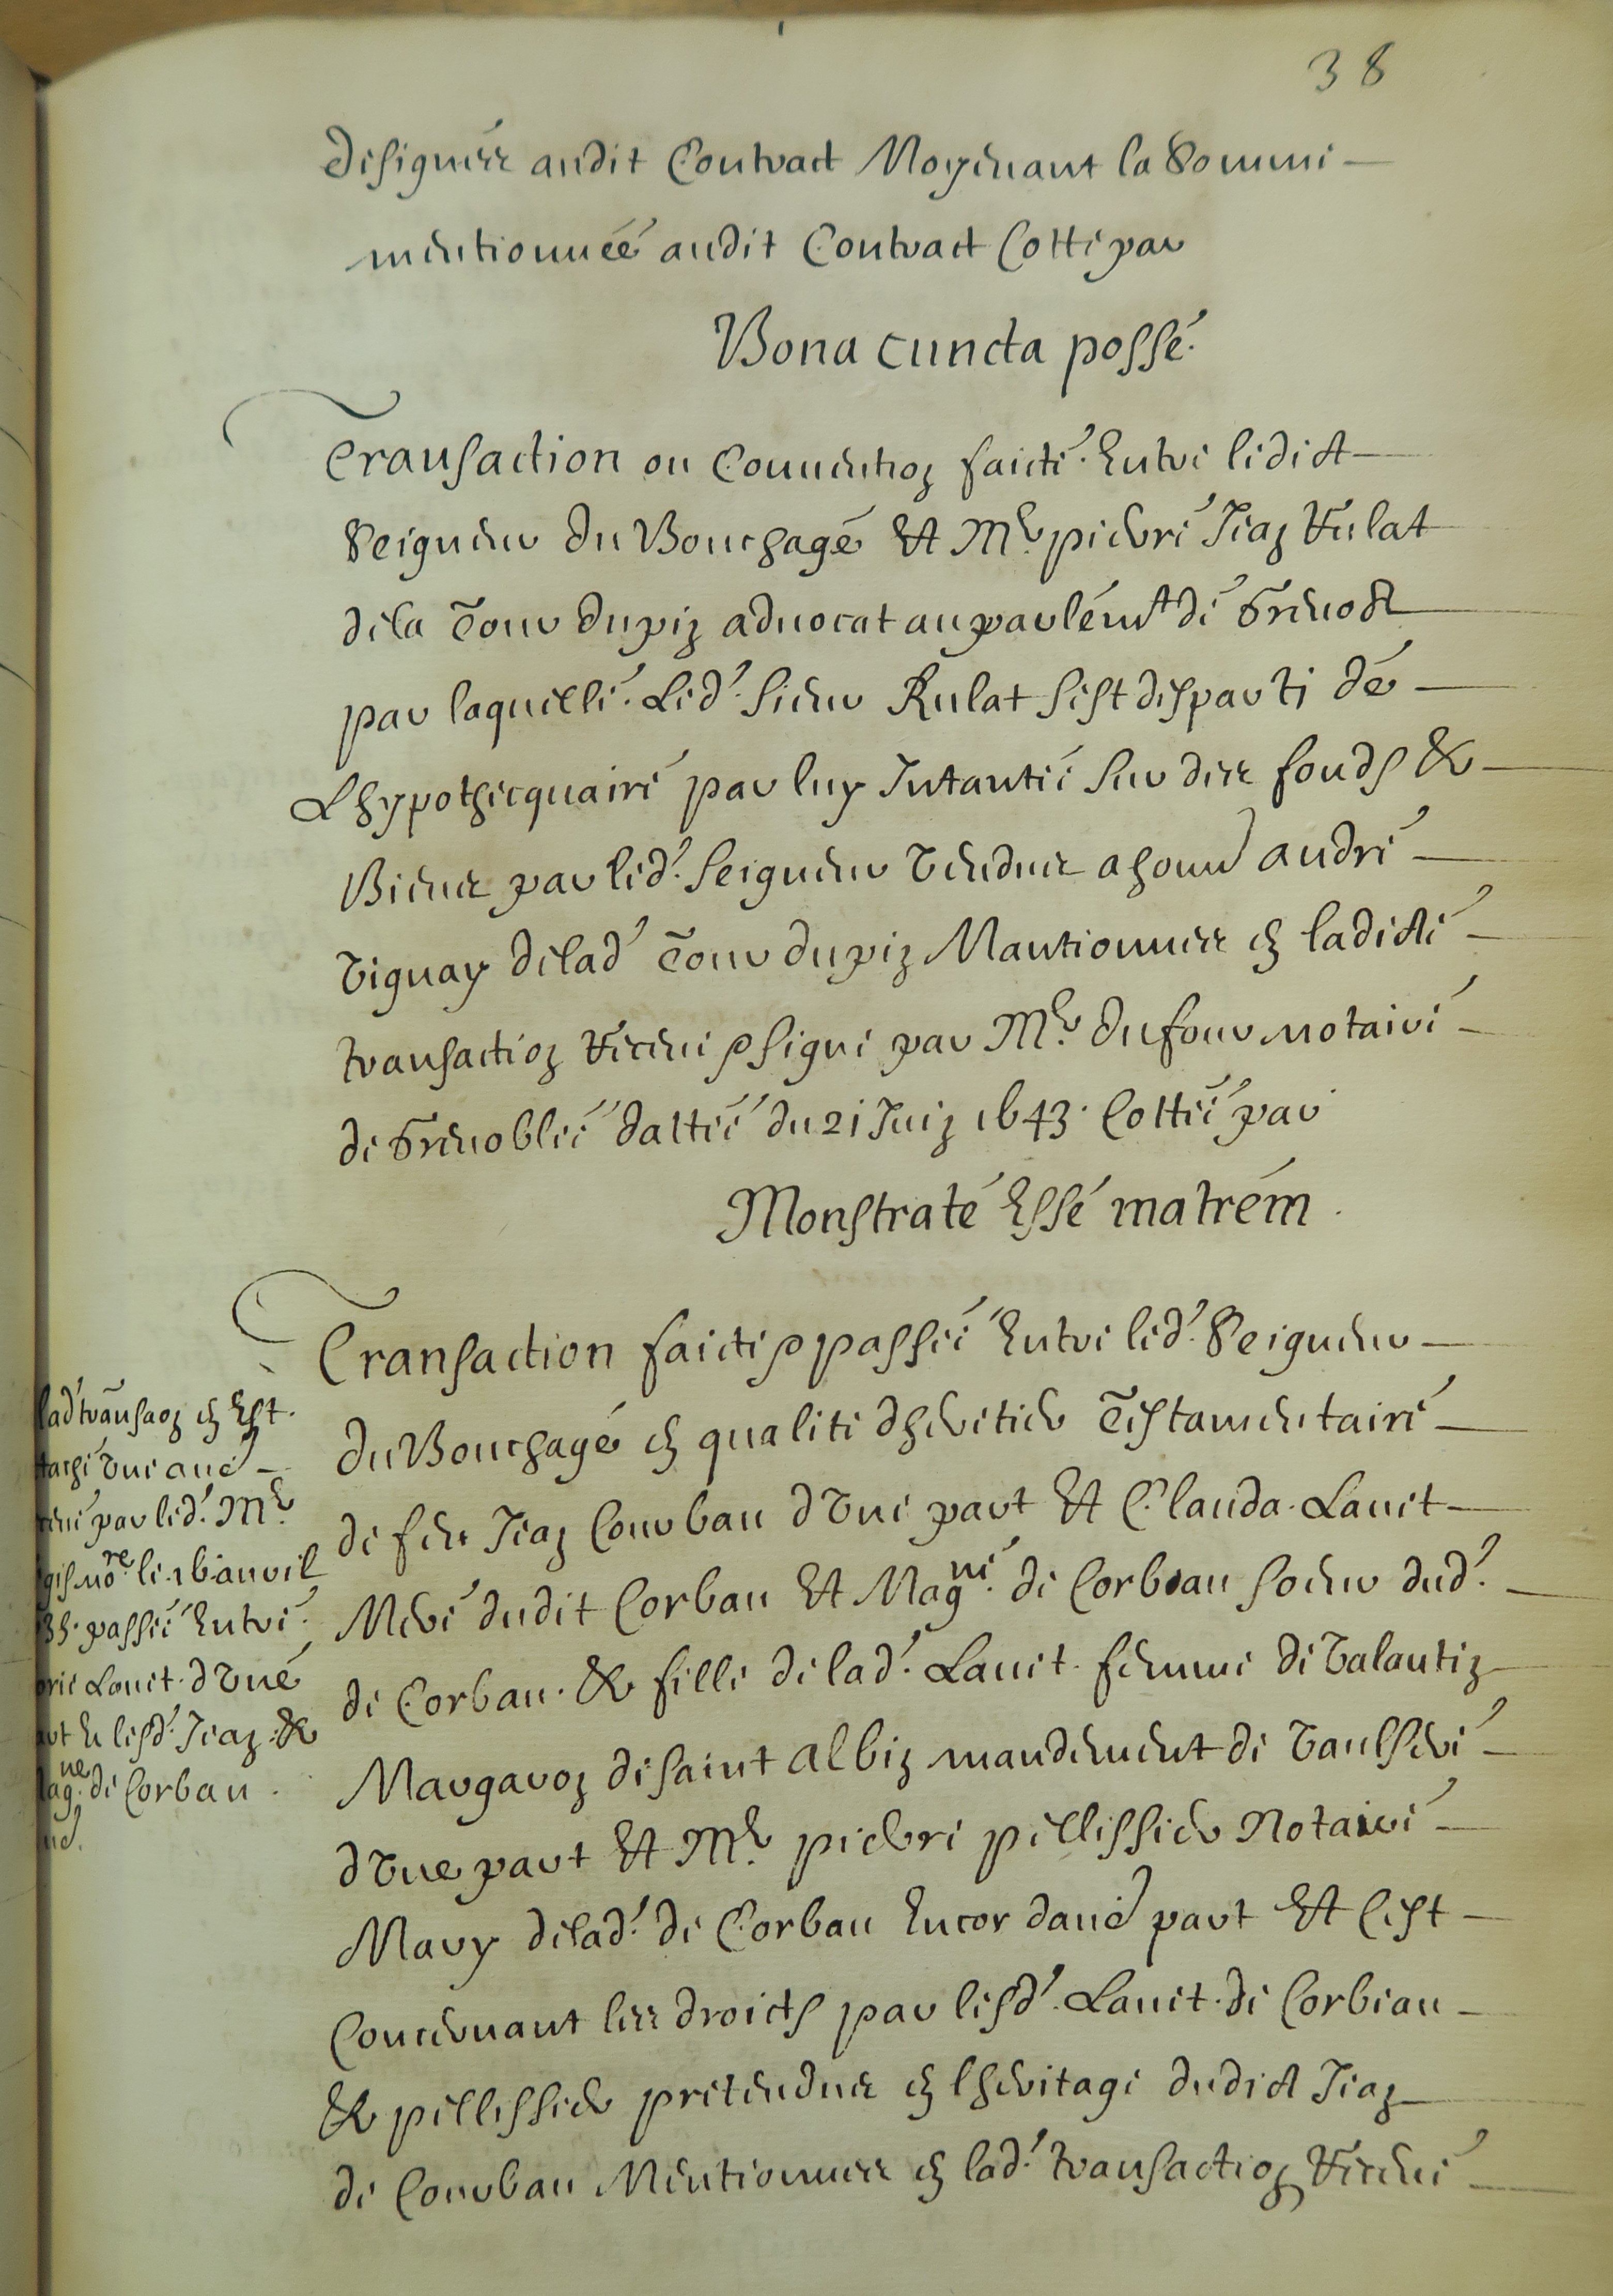 38
designées audit Contract Moyenant la Somme
mentionnée audit Contract Cotté par
Bona cuncta posse.
Transaction ou Convention faicte. Entre ledict
Seigneur du Bouchage Et Mr. pierre Jean Rulat
de la Tour dupin advocat au parlemt de Grenoble
par laquelle. Led. sieur Rulat sest desparti de
Lhypothecquaire par luy Intantée sur des fonds &
Biens par led. seigneur vendus a honnd andré
viguay delad Tour dupin Mantionnes en ladicte
transaction Receue & signé par Mr. dufour notaire
de Grenoblee dattée du 21 Juin 1643. Cottée par
Monstrate Esse matrem.
Transaction faicte & passée Entre led. Seigneur
du Bouchage en qualité dheritier Testamentaire
de feu Jean Courbau d'vne part Et Clauda. Lanet
Mere dudit Corbau Et Magne. de Corbeau soeur dud.
de Corbau. & fille de lad. Lanet. femme de valantin
Margaron de saint albin mandement de vaulserre
d'vne part Et Mr. pierre pellissier Notaire
Mary delad. de Corbau Encor daud part Et C'est
Concernant les droicts par lesd. Lanet. de Corbeau
& pellissier pretendus en lheritage dudict Jean
de Courbau Mentionnes en lad. transaction Receue
lad transaon en Est.
tachée vne aud
ceue par led. Mr.
le 16 avril
35. passée Entre.
Lanet. d'vne
lesd. Jean. &
ne de Corbau.